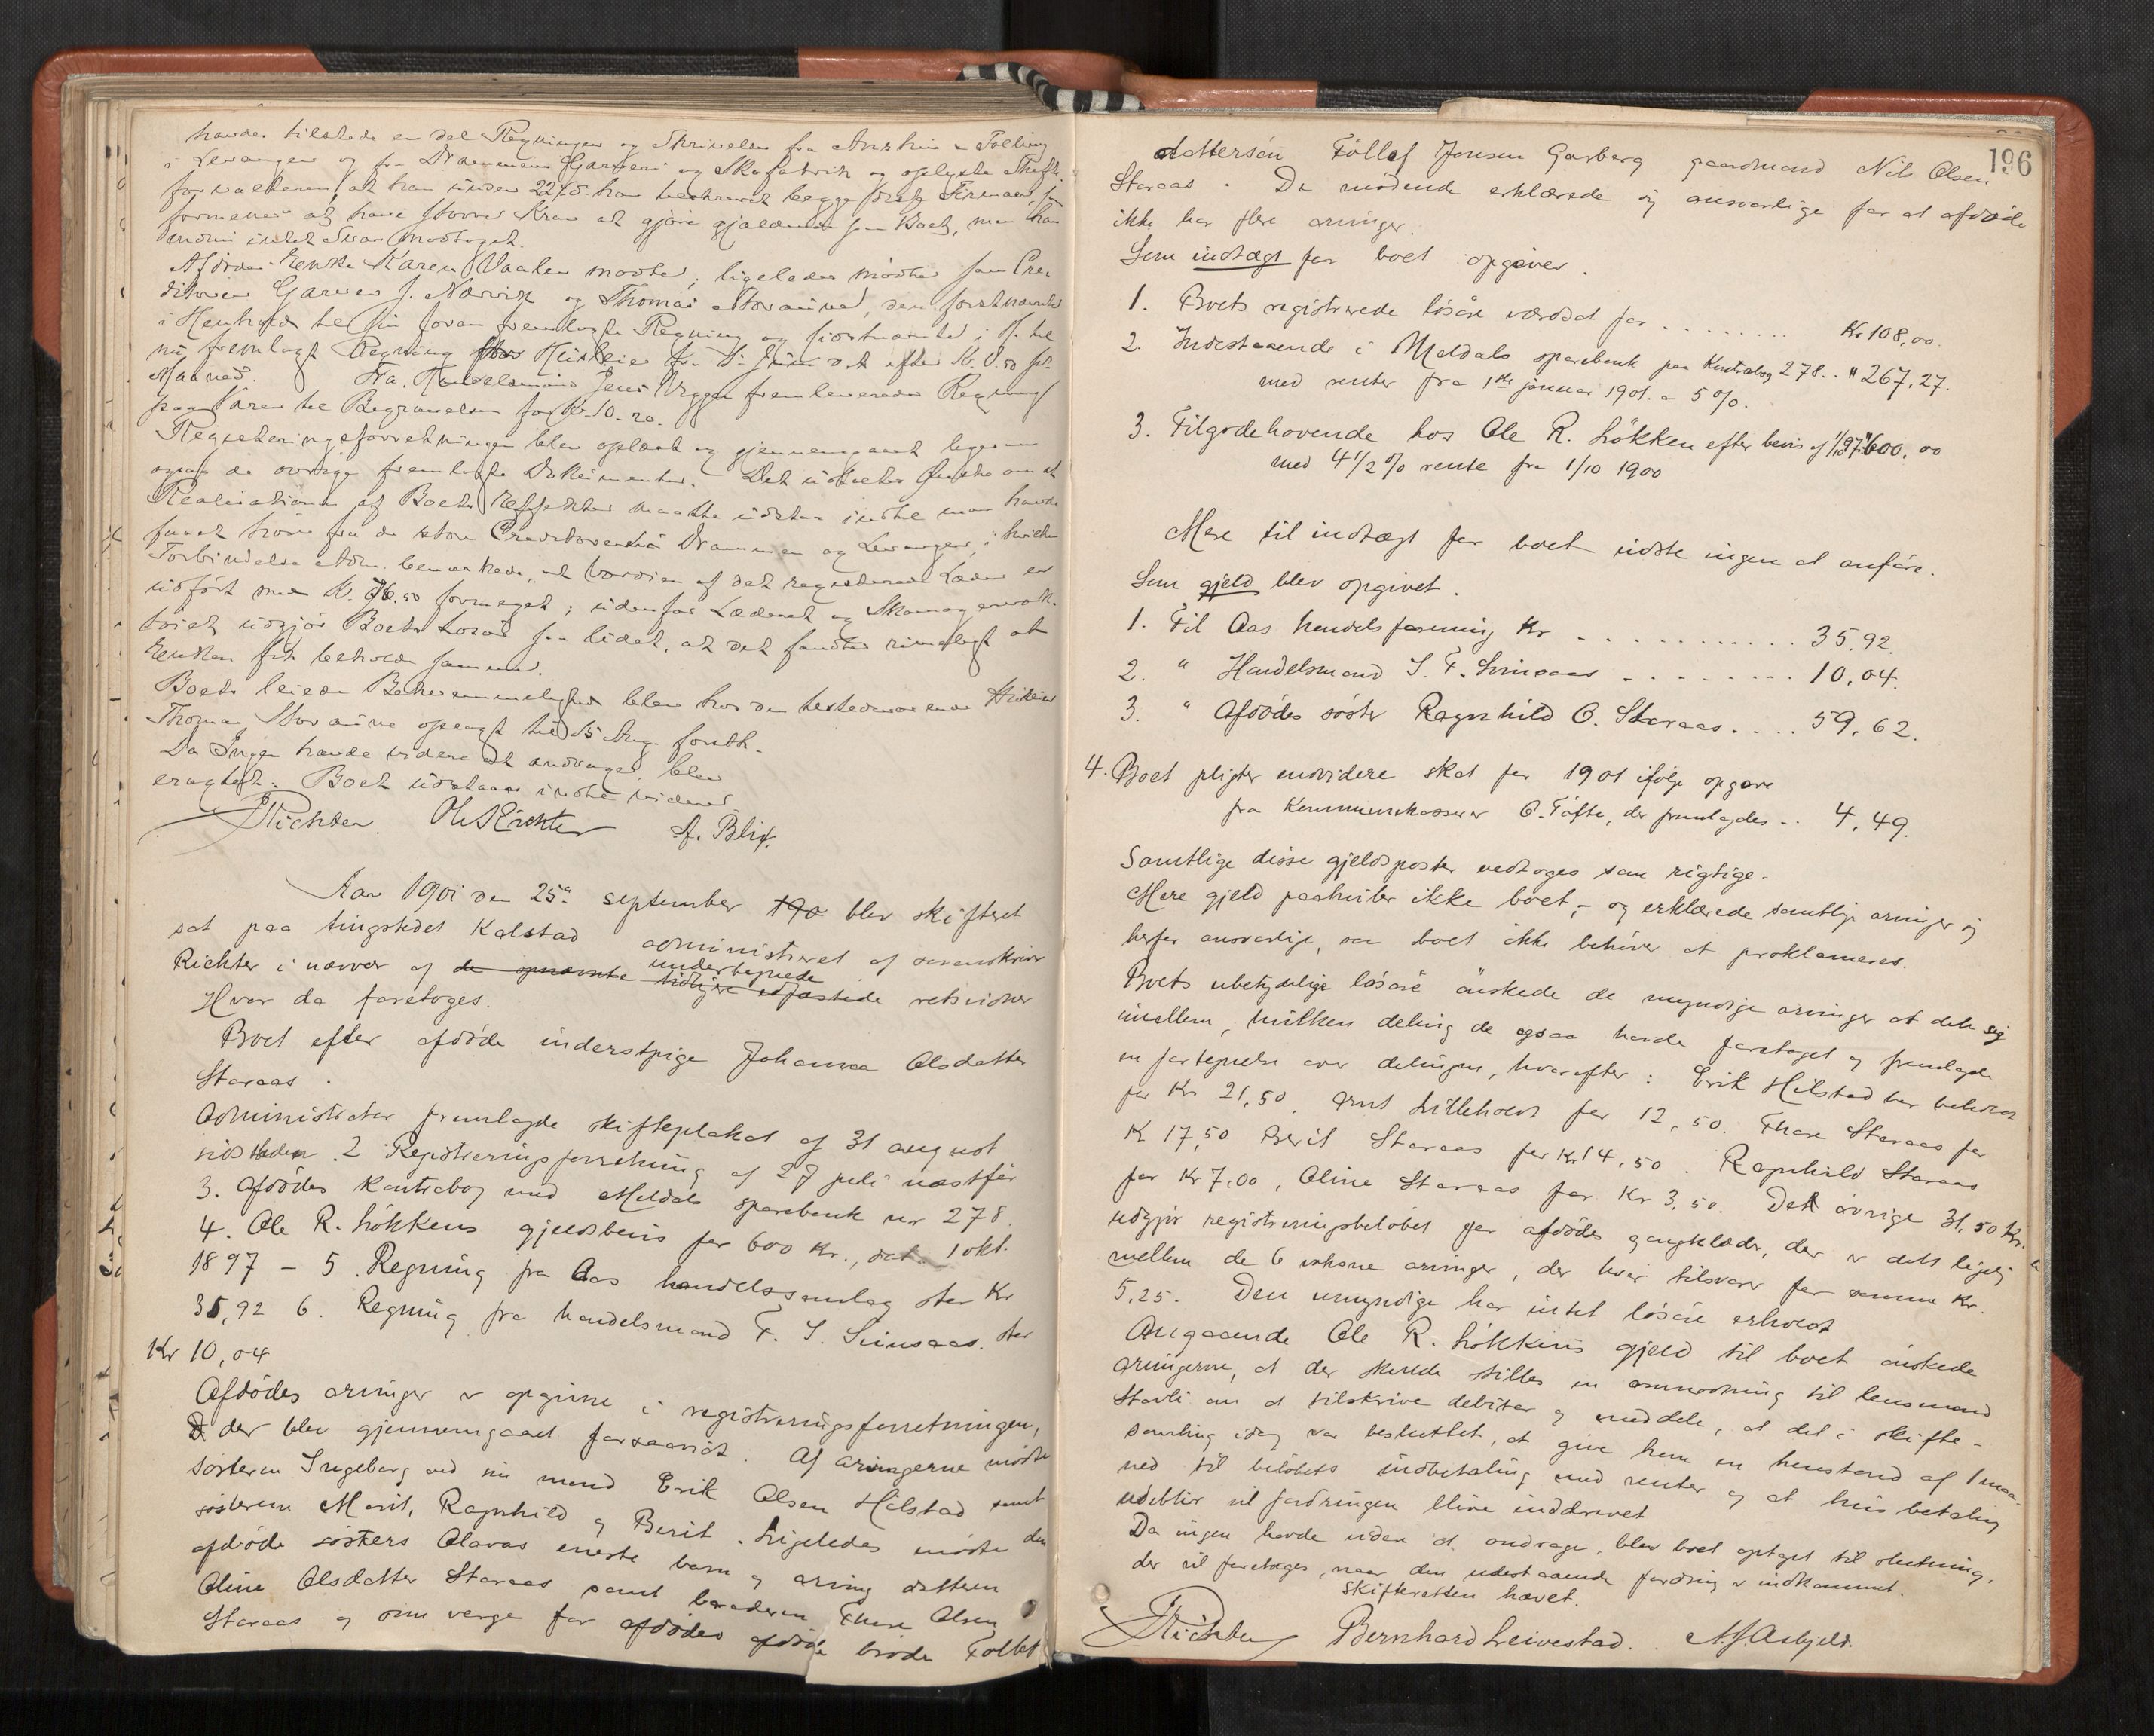 havde tilstede en del Regninger og Skrivelser fra
i Levanger og fra Drammens Garveri og Skofabrik og oplyste Skifte-
forvalteren, at han under 22/7 har begge disse Firmaer, som
formener at have større Krav at gjøre gjældende i Boet, men har
endnu intet Svar modtaget.
Afdødes Enke Karen Vaalen mødte, ligeledes mødte som Cre-
ditorer Garver J. Narvik og Thomas Storaune, den førstnævnte
i Henhold til sin foran fremlagte Regning og sidstnævnte i H. til
nu fremlagt Regning Husleie fra 1. Juni d. A. efter Kr. pr.
Maaned. Fra Handelsmand Jens Uggen fremleveredes Regning
paa Varer til Begravelsen for Kr. 10.20.
Registreringsforretningen blev oplæst og gjennemgaaet ligesom
ogsaa de øvrige fremlagte Dokumenter. Det om at
Realisationen af Boets Effekter maatte udstaa indtil man havde
faaet høre fra de store Creditorer i Drammen og Levanger, i hvilken
Forbindelse Adm. bemærkede, at Værdien af det registrerede Læder er
udført med Kr. 76.50 formeget; udenfor Læderet og Skomagerværk-
tøiet udgjør Boets Løsøre saa lidet, at det fandtes rimeligt at
Enken fik beholde samme.
Boets leiede Bekvemmelighed blev hos den tilstedeværende Huseier
Thomas Storaune opsagt til 15 Aug. førstk.
Da Ingen havde videre at andrage, blev
eragtet: Boet udstaar indtil videre.
Richter. Ole Richter A. Blix.
Aar 1901 den 25de september 190 blev skifteret
sat paa tingstedet Kalstad administreret af sorenskriver
Richter i nærvær af de opnævnte tidligere edfæstede undertegnede retsvidner
Hvor da foretoges.
Boet efter afdøde inderstpige Johanna Olsdatter
Staraas.
Administrator fremlagde skifteplakat af 31 august
sidstleden 2 Registreringsforretning af 27 juli næstfør
3. Afdødes kontrabog med Meldals sparebank nr 278.
4. Ole R. Løkkens gjeldsbevis for 600 Kr., dat. 1 okt.
1897 – 5. Regning fra Aas handelssamlag stor Kr
35,92 6. Regning fra handelsmand F. S. Svinsaas. stor
Kr 10,04
Afdødes arvinger er opgivne i registreringsforretningen,
der blev gjennemgaaet forsaavidt. Af arvingerne mødte
søsteren Ingeborg ved sin mand Erik Olsen Hilstad samt
søsterene Marit, Ragnhild og Berit. Ligeledes mødte den
afdøde søsters Olavas eneste barn og arving datteren
Oline Olsdatter Staraas samt broderen Thore Olsen
Staraas og som verge for afdødes afdøde broder Tollef
196
dattersøn Tøllef Jonsen Garberg gaardmand Nils Olsen
Staraas. De mødende erklærede sig ansvarlige for at afdøde
ikke har flere arvinger.
Som indtægt for boet opgives.
1. Boets registrerede løsøre værdsat for ........ Kr 108,00.
2. Indestaaende i Meldals sparebank paa Kontrabog 278.. " 267,27.
med renter fra 1ste januar 1901. a 5 %.
3. Tilgodehavende hos Ole R. Løkken efter bevis af 1/10 97. " 600,00
med 4 1/2 % rente fra 1/10 1900
Mere til indtægt for boet vidste ingen at anføre.
Som gjeld blev opgivet.
1. Til Aas handelsforening Kr ........... 35,92.
2. " Handelsmand S. F. Svinsaas ........ 10,04.
3. " Afdødes søster Ragnhild O. Staraas.... 59,62.
4. Boet pligter endvidere skat for 1901 ifølge opgave
fra Kommunekasserer O. Tøfte, der fremlagdes .. 4,49.
Samtlige disse gjeldsposter vedtoges som rigtige.
Mere gjeld paahviler ikke boet, – og erklærede samtlige arvinger sig
herfor ansvarlige, saa boet ikke behøver at proklameres.
Boets ubetydelige løsøre ønskede de myndige arvinger at dele sig
imellem, hvilken deling de ogsaa havde foretaget og fremlagde
en fortegnelse over delingen, hvorefter: Erik Hilstad har beholdt
for Kr 21,50. Arnt Lilleholdt for 12,50. Thore Staraas for
Kr 17,50 Berit Staraas for Kr 14,50. Ragnhild Staraas
for Kr 7,00, Oline Staraas for Kr 3,50. Det øvrige 31,50 Kr.
udgjør registreringsbeløbet for afdødes gangklæder, der er delt ligelig
mellem de 6 voksne arvinger, der hver tilsvarer for samme Kr. a
5,25. Den umyndige har intet løsøre erholdt
Angaaende Ole R. Løkkens gjeld til boet ønskede
arvingerne, at der skulde stilles en anmodning til lensmand
Stavli om at tilskrive debitor og meddele, at det i skifte-
samling idag var besluttet, at give ham en henstand af 1 maa-
ned til beløbets indbetaling med renter og at hvis betaling
udeblir vil fordringen blive inddrevet
Da ingen havde videre at andrage, blev boet optaget til slutning,
der vil foretages, naar den udestaaende fordring er indkommet.
Skifteretten hævet.
Richter Bernhard Leivestad. A. J. Asbjeld.